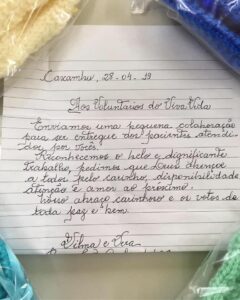 Caxambu, 28-04-19
Aos Voluntários do Viva Vida
Enviamos uma pequena colaboração
para ser entregue aos pacientes atendi
dos por vocês.
Reconhecemos o belo e dignificante
trabalho, pedimos que Deus abençoe
a todos pelo carinho, disponibilidade
atenção e amor ao próximo.
Nosso abraço carinhoso e os votos de
toda paz e bem.
Vilma e Vera